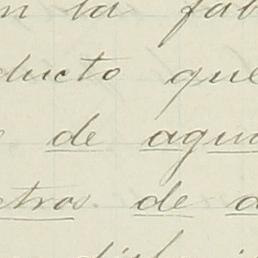 en la fab
ducto que
de agua
etros de a